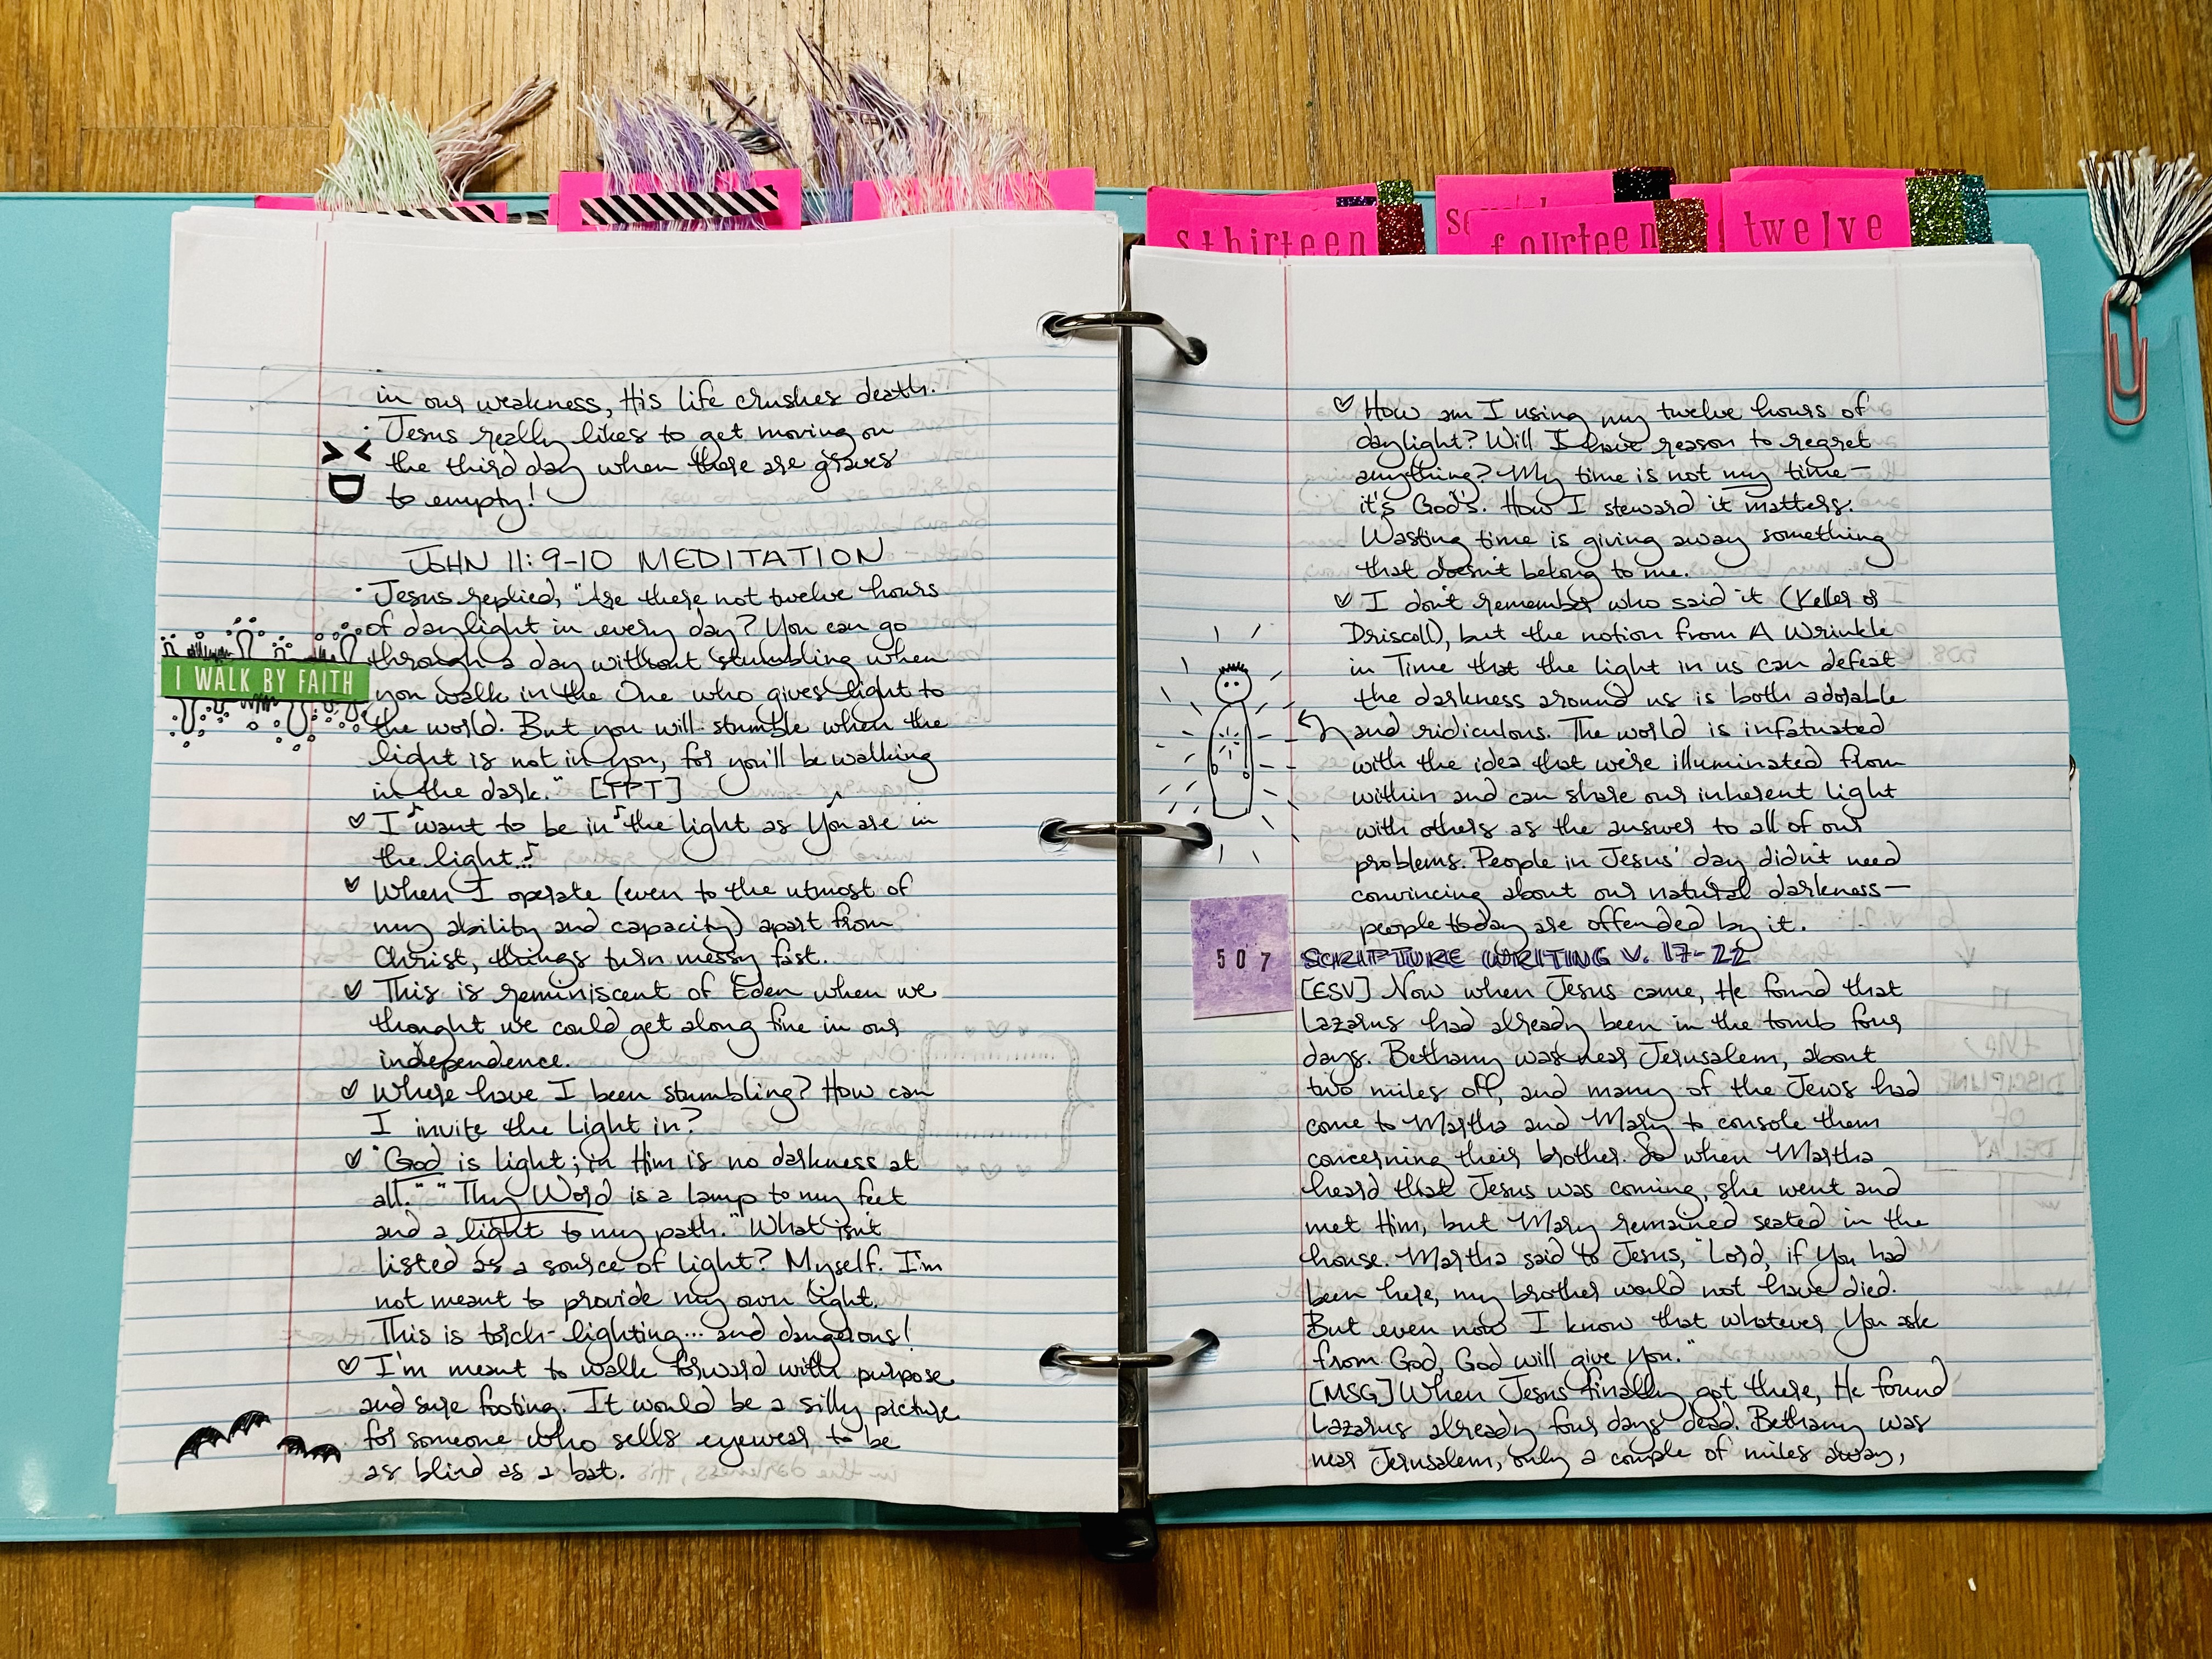 in our weakness, His life crushes death.
Jesus really likes to get moving on
the third day when there are graves
to empty!
JOHN 11:9-10 MEDITATION
Jesus replied, "Are there not twelve hours
of daylight in every day? You can go
through a day without stumbling when
you walk in the One who gives light to
the world. But you will stumble when the
light is not in you, for you'll be walking
in the dark." [TPT]
I WALK BY FAITH
♡ I want to be in the light as You are in
the light...
♡ When I operate (even to the utmost of
my ability and capacity) apart from
Christ, things turn messy fast.
♡ This is reminiscent of Eden when we
thought we could get along fine in our
independence.
♡ Where have I been stumbling? How can
I invite the Light in?
♡ "God is light; in Him is no darkness at
all." "Thy Word is a lamp to my feet
and a light to my path." What isn't
listed as a source of light? Myself. I'm
not meant to provide my own light.
This is torch-lighting... and dangerous!
♡ I'm meant to walk forward with purpose
and sure footing. It would be a silly picture
for someone who sells eyewear to be
as blind as a bat.
thirteen
fourteen
twelve
♡ How am I using my twelve hours of
daylight? Will I have reason to regret
anything? My time is not my time—
it's God's. How I steward it matters.
Wasting time is giving away something
that doesn't belong to me.
♡ I don't remember who said it (Keller or
Driscoll), but the notion from A Wrinkle
in Time that the light in us can defeat
the darkness around us is both adorable
and ridiculous. The world is infatuated
with the idea that we're illuminated from
within and can share our inherent light
with others as the answer to all of our
problems. People in Jesus' day didn't need
convincing about our natural darkness—
people today are offended by it.
507
SCRIPTURE WRITING V. 17-22
[ESV] Now when Jesus came, He found that
Lazarus had already been in the tomb four
days. Bethany was near Jerusalem, about
two miles off, and many of the Jews had
come to Martha and Mary to console them
concerning their brother. So when Martha
heard that Jesus was coming, she went and
met Him, but Mary remained seated in the
house. Martha said to Jesus, "Lord, if You had
been here, my brother would not have died.
But even now I know that whatever You ask
from God, God will give You."
[MSG] When Jesus finally got there, He found
Lazarus already four days dead. Bethany was
near Jerusalem, only a couple of miles away,